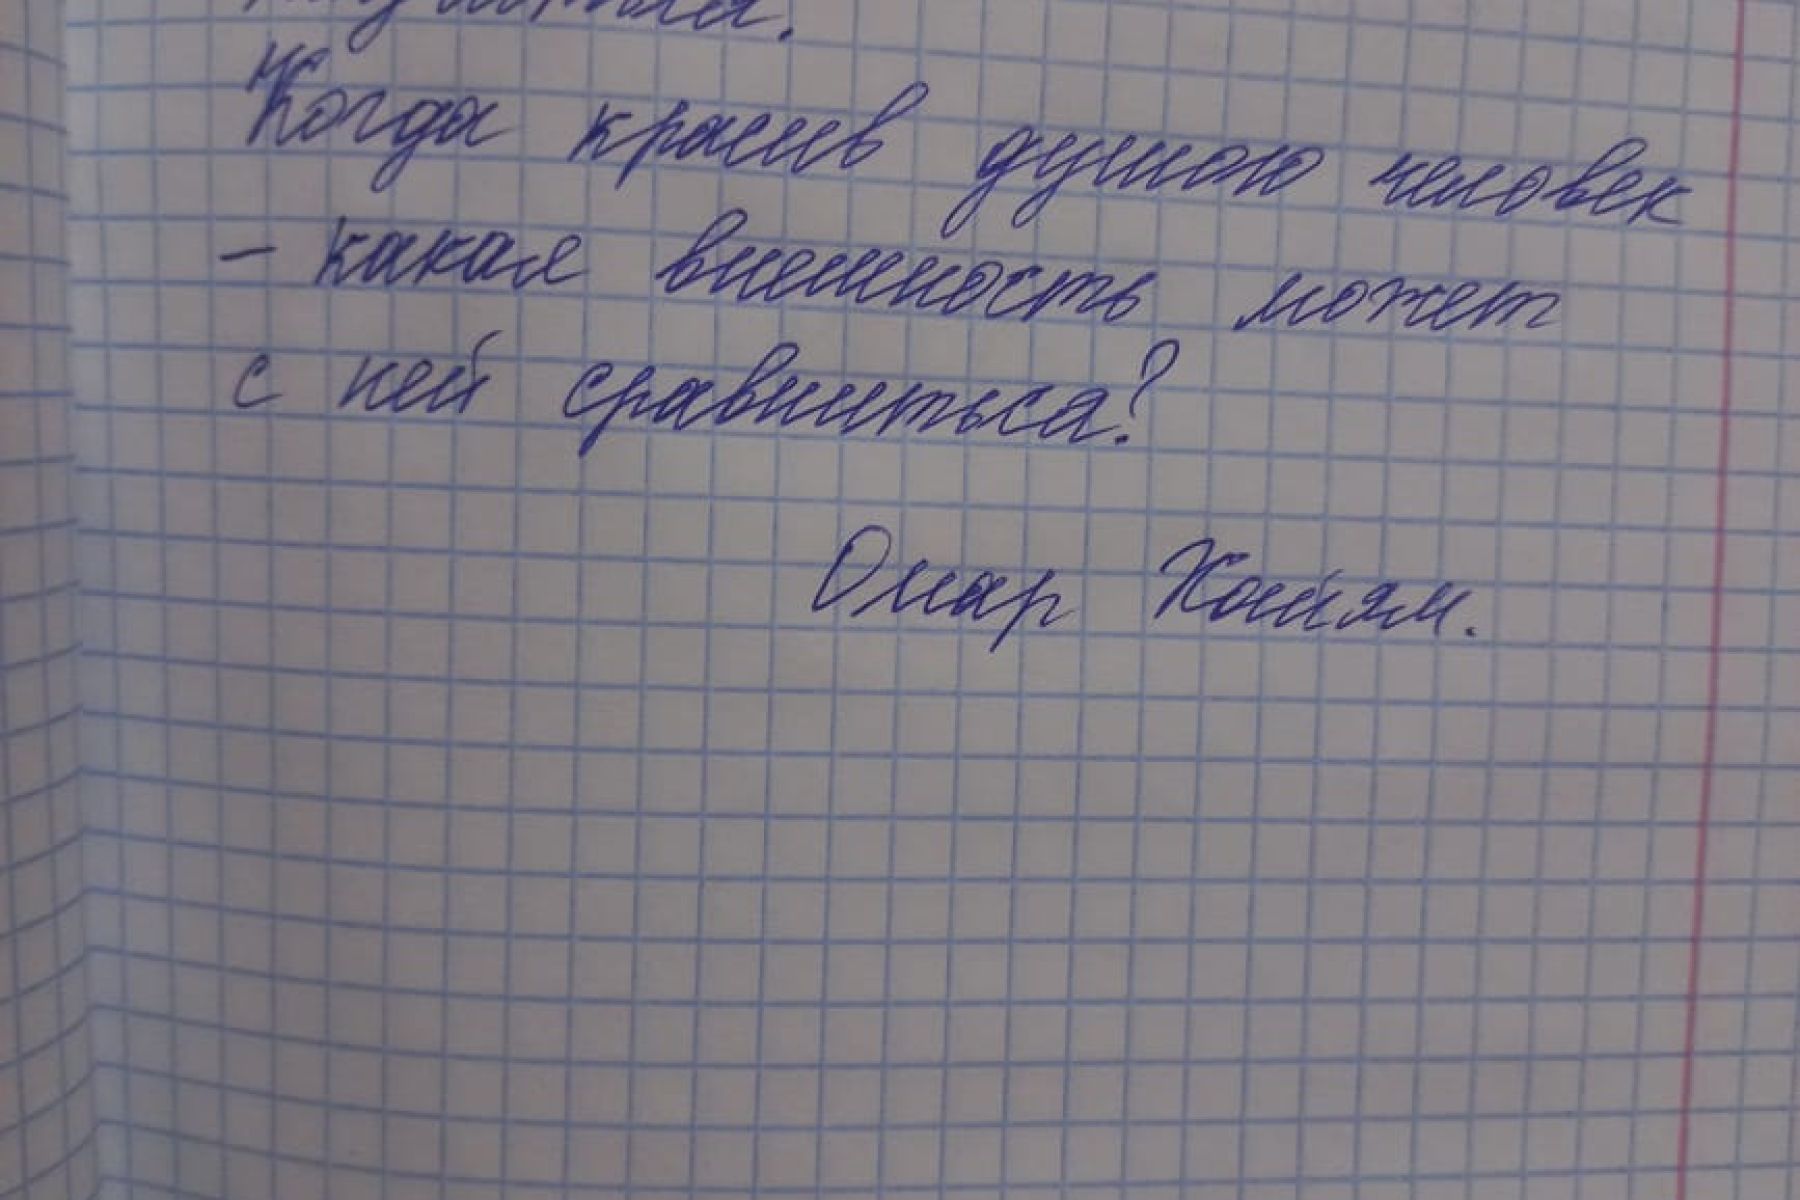 Когда красив душою человек
- какая внешность может
с ней сравниться?
Омар Хайям.